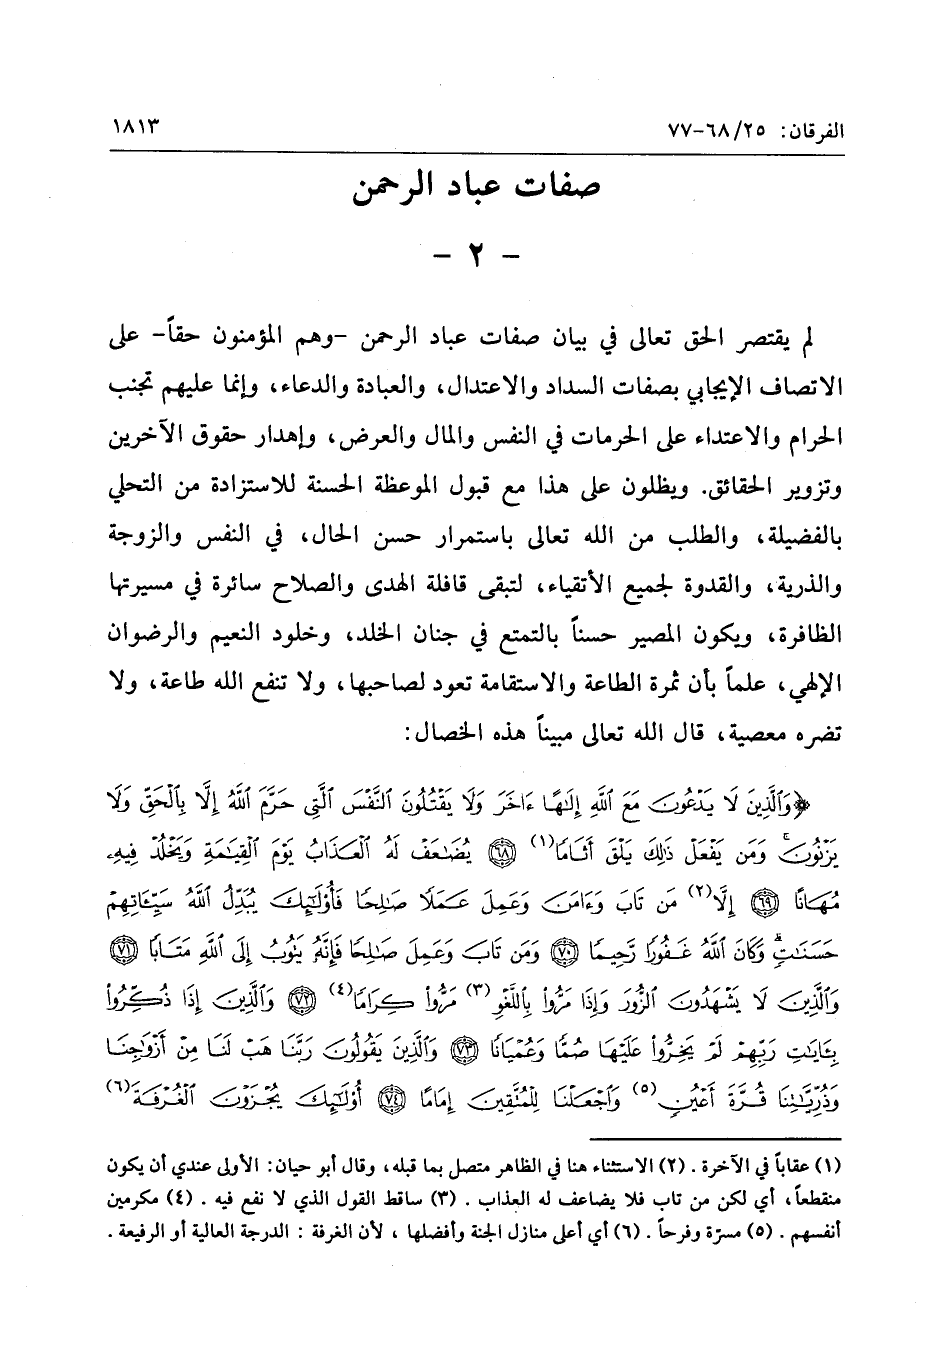 الفرقان: ٢٥/ ٦٨-٧٧ ١٨١٣
صفات عباد الرحمن
- ٢ -
لم يقتصر الحق تعالى في بيان صفات عباد الرحمن -وهم المؤمنون حقاً- على
الاتصاف الإيجابي بصفات السداد والاعتدال، والعبادة والدعاء، وإنما عليهم تجنب
الحرام والاعتداء على الحرمات في النفس والمال والعرض، وإهدار حقوق الآخرين
وتزوير الحقائق. ويظلون على هذا مع قبول الموعظة الحسنة للاستزادة من التحلي
بالفضيلة، والطلب من الله تعالى باستمرار حسن الحال، في النفس والزوجة
والذرية، والقدوة لجميع الأتقياء، لتبقى قافلة الهدى والصلاح سائرة في مسيرتها
الظافرة، ويكون المصير حسناً بالتمتع في جنان الخلد، وخلود النعيم والرضوان
الإلهي، علماً بأن ثمرة الطاعة والاستقامة تعود لصاحبها، ولا تنفع الله طاعة، ولا
تضره معصية، قال الله تعالى مبيناً هذه الخصال:
﴿وَالَّذِينَ لَا يَدْعُونَ مَعَ اللَّهِ إِلَٰهًا ءَاخَرَ وَلَا يَقْتُلُونَ النَّفْسَ الَّتِي حَرَّمَ اللَّهُ إِلَّا بِالْحَقِّ وَلَا
يَزْنُونَ ۚ وَمَن يَفْعَلْ ذَٰلِكَ يَلْقَ أَثَامًا(١) ٦٨ يُضَٰعَفْ لَهُ الْعَذَابُ يَوْمَ الْقِيَٰمَةِ وَيَخْلُدْ فِيهِ
مُهَانًا ٦٩ إِلَّا(٢) مَن تَابَ وَءَامَنَ وَعَمِلَ عَمَلًا صَٰلِحًا فَأُولَٰئِكَ يُبَدِّلُ اللَّهُ سَيِّـَٔاتِهِمْ
حَسَنَٰتٍ ۗ وَكَانَ اللَّهُ غَفُورًا رَّحِيمًا ٧٠ وَمَن تَابَ وَعَمِلَ صَٰلِحًا فَإِنَّهُ يَتُوبُ إِلَى اللَّهِ مَتَابًا ٧١
وَالَّذِينَ لَا يَشْهَدُونَ الزُّورَ وَإِذَا مَرُّوا بِاللَّغْوِ(٣) مَرُّوا كِرَامًا(٤) ٧٢ وَالَّذِينَ إِذَا ذُكِّرُوا
بِـَٔايَٰتِ رَبِّهِمْ لَمْ يَخِرُّوا عَلَيْهَا صُمًّا وَعُمْيَانًا ٧٣ وَالَّذِينَ يَقُولُونَ رَبَّنَا هَبْ لَنَا مِنْ أَزْوَٰجِنَا
وَذُرِّيَّٰتِنَا قُرَّةَ أَعْيُنٍ(٥) وَاجْعَلْنَا لِلْمُتَّقِينَ إِمَامًا ٧٤ أُولَٰئِكَ يُجْزَوْنَ الْغُرْفَةَ(٦)
(١) عقاباً في الآخرة. (٢) الاستثناء هنا في الظاهر متصل بما قبله، وقال أبو حيان: الأولى عندي أن يكون
منقطعاً، أي لكن من تاب فلا يضاعف له العذاب. (٣) ساقط القول الذي لا نفع فيه. (٤) مكرمين
أنفسهم. (٥) مسرّة وفرحاً. (٦) أي أعلى منازل الجنة وأفضلها، لأن الغرفة: الدرجة العالية أو الرفيعة.